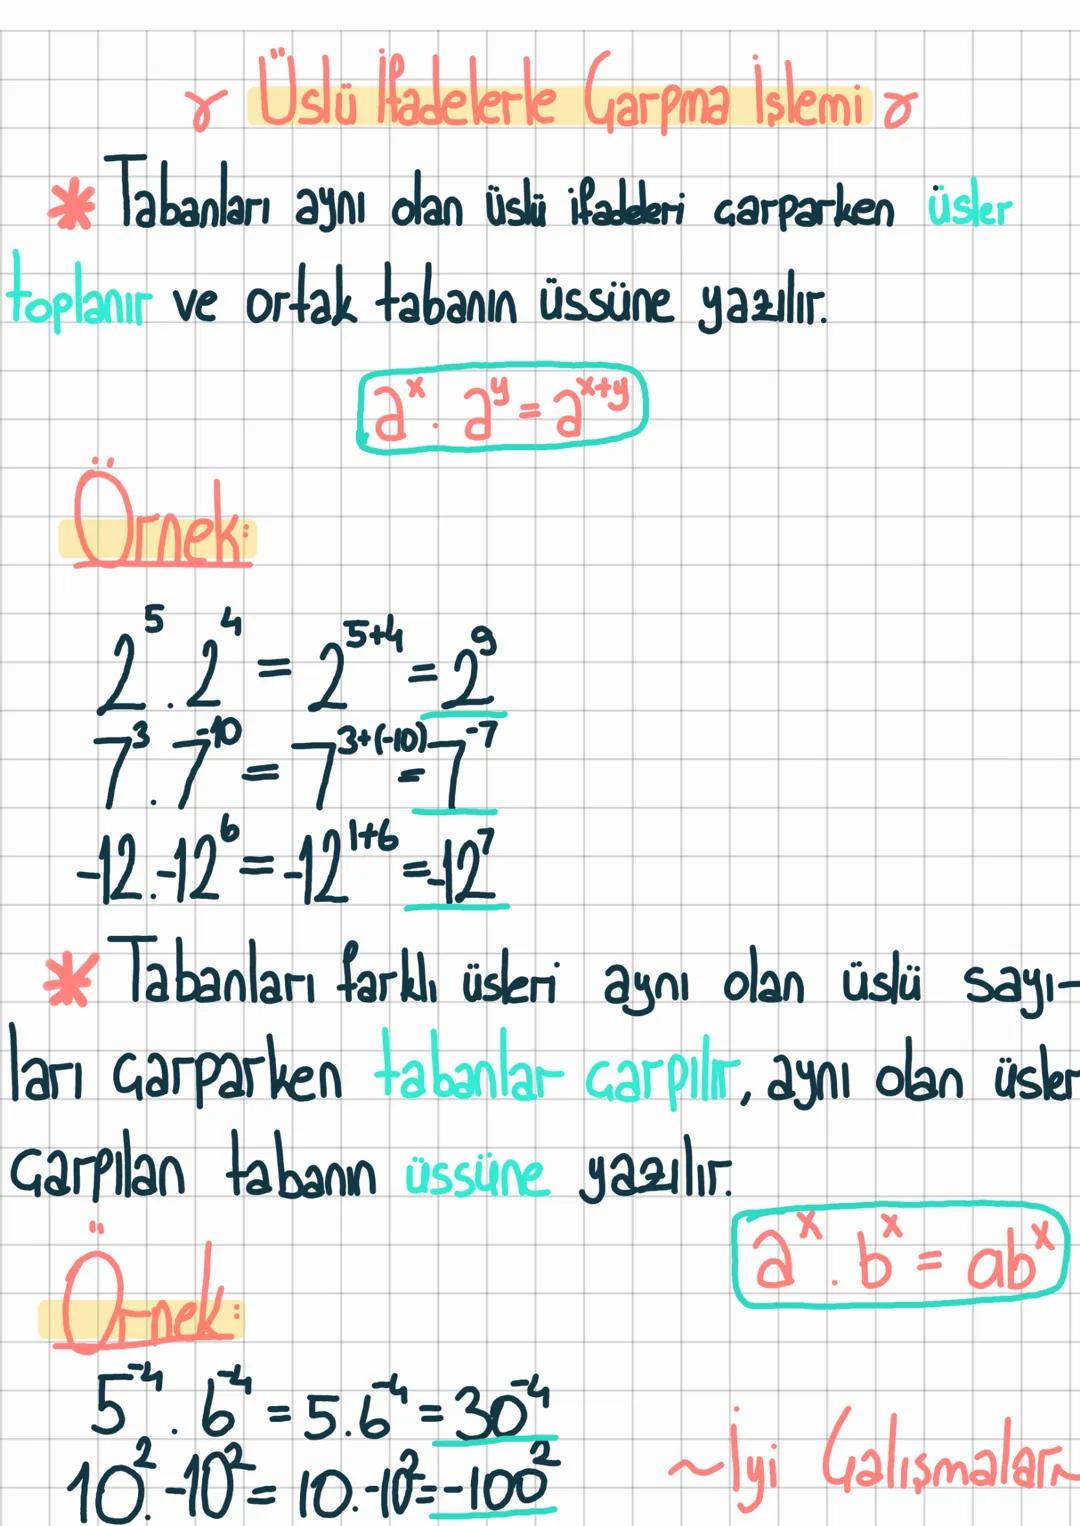 Üslü İfadelerle Çarpma İşlemi
* Tabanları aynı olan üslü ifadeleri çarparken üsler
toplanır ve ortak tabanın üssüne yazılır.
aˣ . aʸ = aˣ⁺ʸ
Örnek:
2⁵ . 2⁴ = 2⁵⁺⁴ = 2⁹
7³ . 7⁻¹⁰ = 7³⁺⁽⁻¹⁰⁾ = 7⁻⁷
-12 . -12⁶ = -12¹⁺⁶ = -12⁷
* Tabanları farklı üsleri aynı olan üslü sayı-
ları çarparken tabanlar çarpılır, aynı olan üsler
çarpılan tabanın üssüne yazılır.
aˣ . bˣ = abˣ
Örnek:
5⁻⁴ . 6⁻⁴ = 5.6⁻⁴ = 30⁻⁴
10² . -10² = 10 . -10² = -100²
~İyi Çalışmalar~